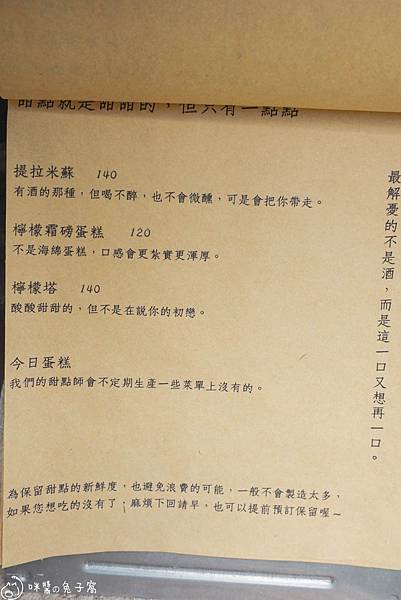 甜點就是甜甜的，但只有一點點
提拉米蘇 140
有酒的那種，但喝不醉，也不會微醺，可是會把你帶走。
檸檬霜磅蛋糕 120
不是海綿蛋糕，口感會更紮實更渾厚。
檸檬塔 140
酸酸甜甜的，但不是在說你的初戀。
今日蛋糕
我們的甜點師會不定期生產一些菜單上沒有的。
為保留甜點的新鮮度，也避免浪費的可能，一般不會製造太多，
如果您想吃的沒有了；麻煩下回請早，也可以提前預訂保留喔～
最解憂的不是酒，而是這一口又想再一口。
咪醬の兔子窩